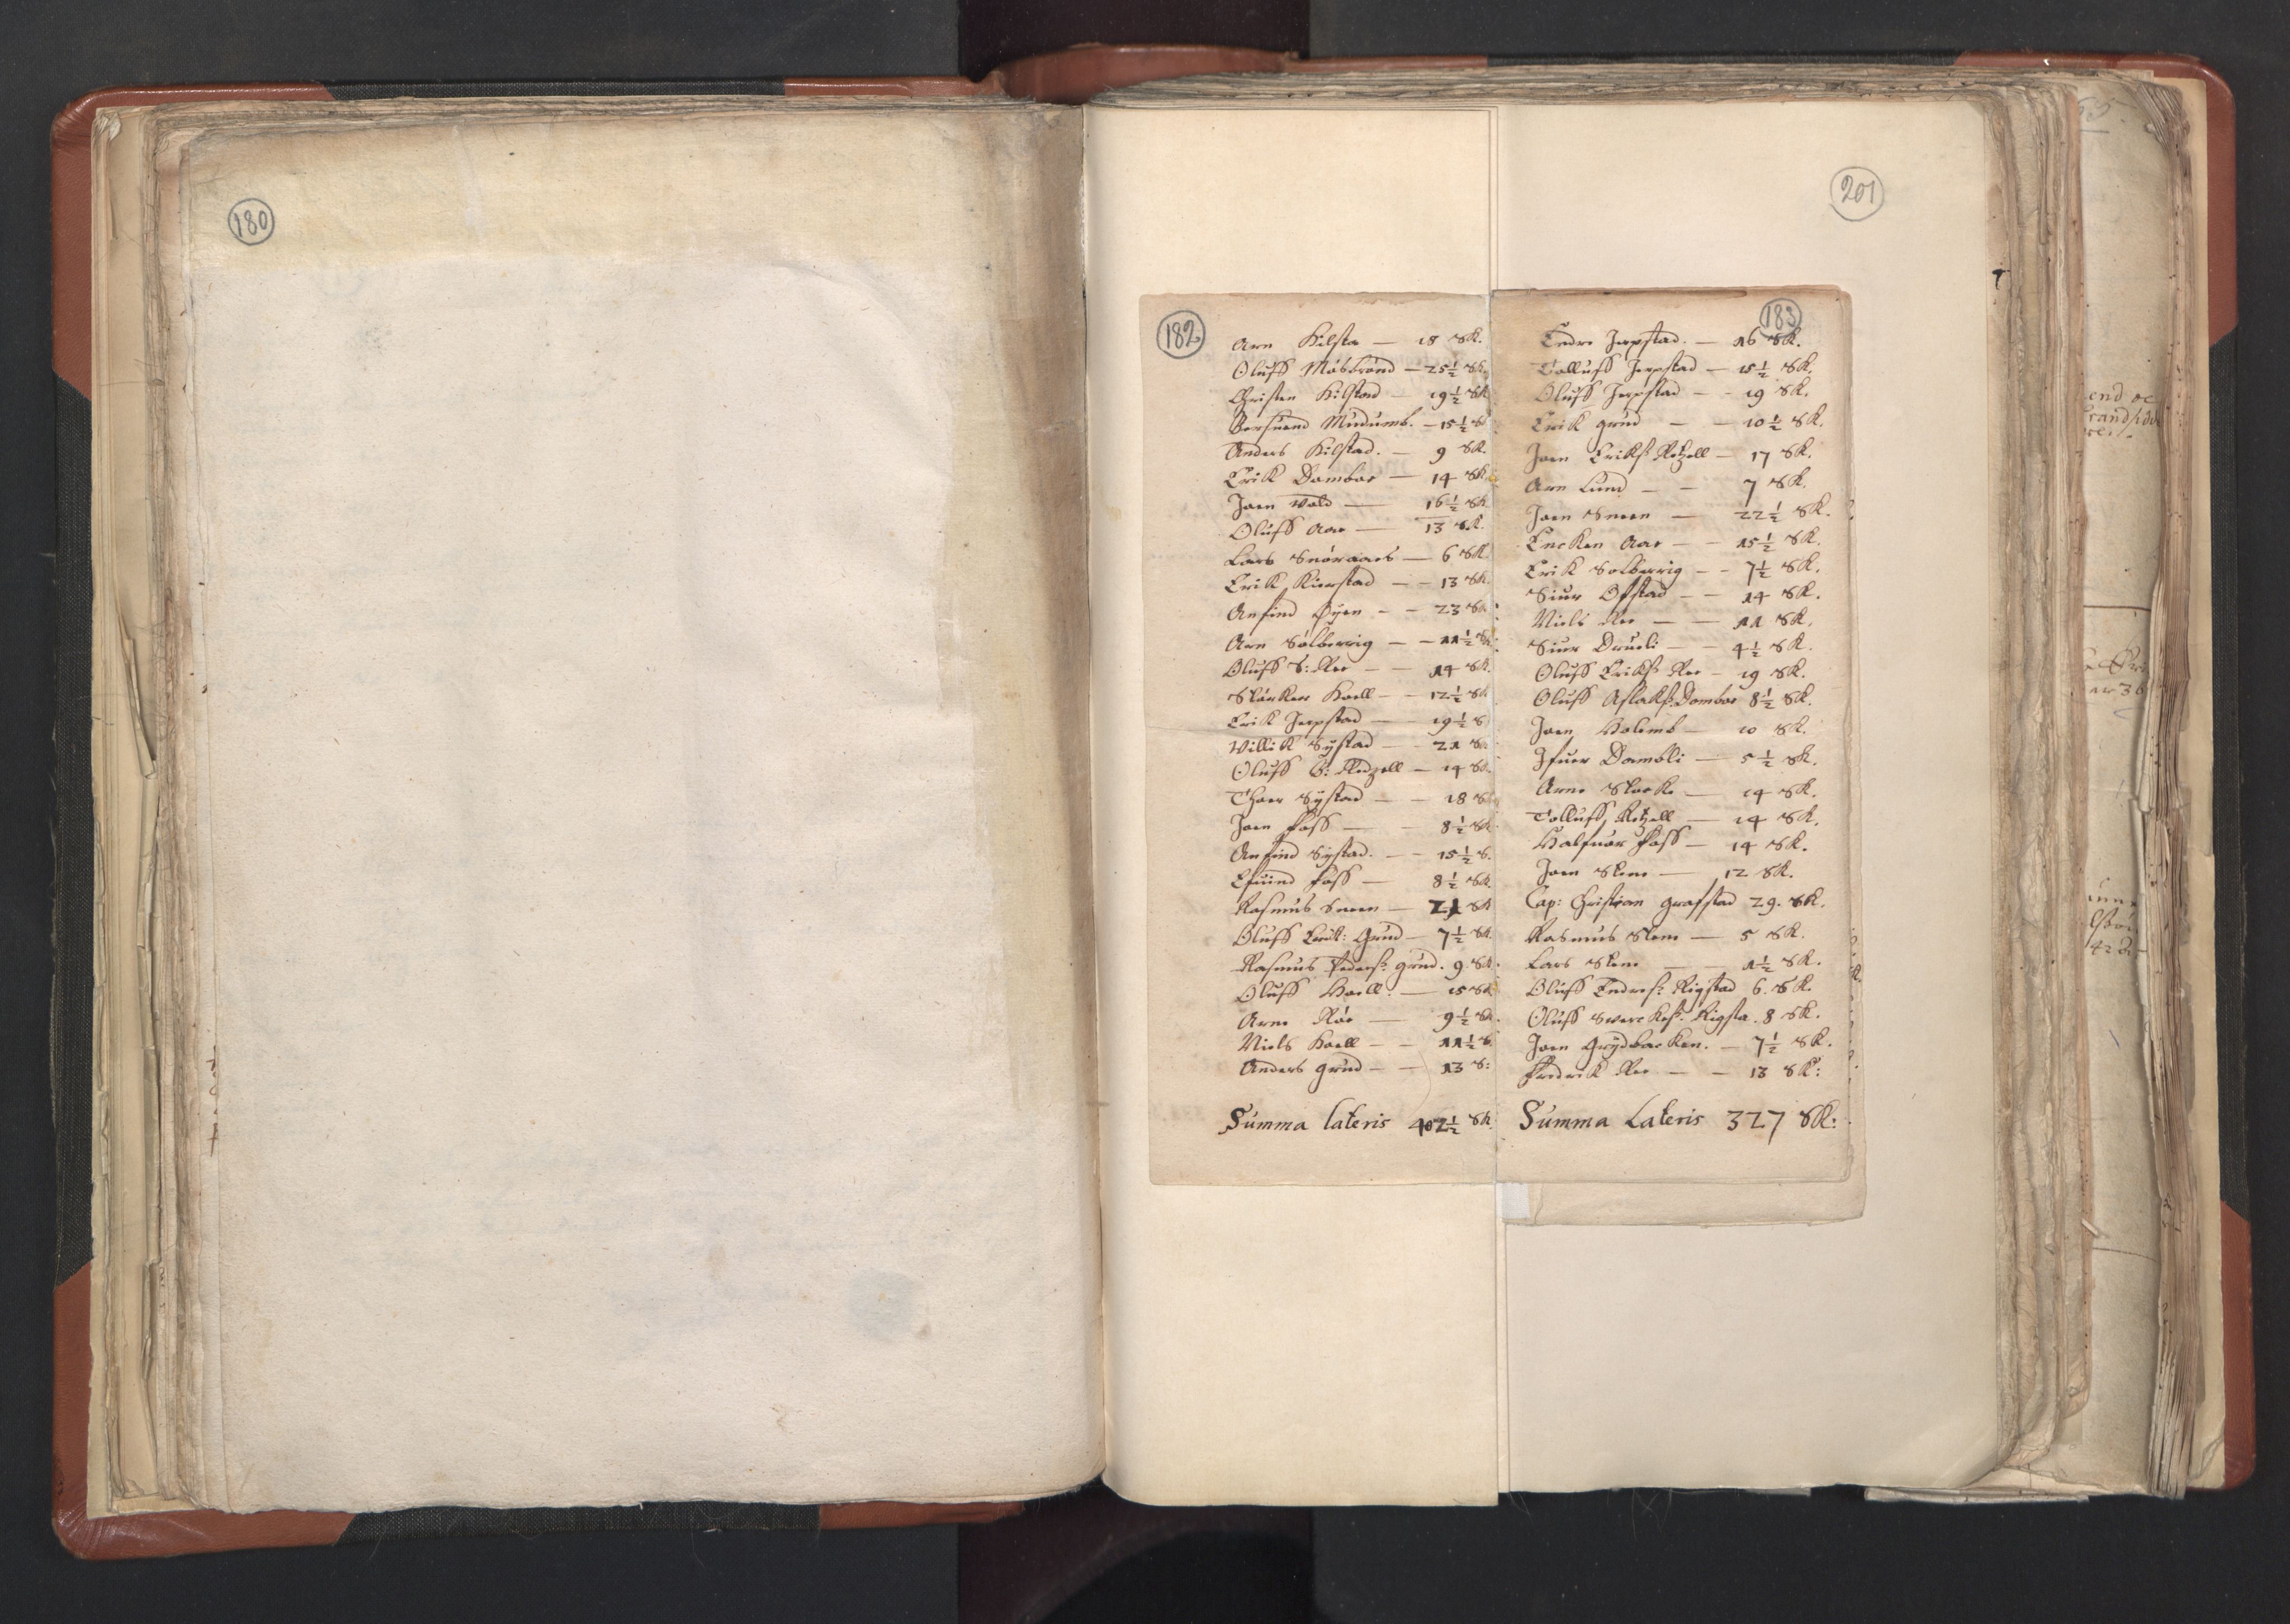 180
201
182
Arn Kilsta — 18 SK.
Oluff Mósbrónd — 25½ SK.
Christen Kilstad 19½ SK
Mudumb. — 15½ S
Anders Kilstad. — 9 SK.
Erik Dombaar — 14 SK
Joen Wold — 16½ SK
Oluff Aar — 13 SK.
Lars Snóraars — 6 SK.
Erik Kierstad — — 13 SK.
Anfind Öyen — — 23 SK
Arn Sólberrig — — 11½ SK
Oluff S: Ree — — 14 SK.
Stórker Hoell — — 12½ SK
Erik Jerpstad — — 19½ S
Willik Sÿstad — — 21 SK
Oluff B: Redzell — 14 SK.
Thoer Sÿstad — — 18 S
Joen foss — — 8½ SK
Anfind Sÿstad. — — 15½ S.
Efuind foss — 8½ SK.
Rasmus Sneen — 21 SK
Oluff Erik: Grud — 7½ SK.
Rasmus Peders: grud. 9. SK.
Oluff Hoell. — 15 SK
Arne Róe — 9½ SK.
Niels Hoell — — 11½ S.
Anders grud — — 13 S:
Summa lateris 402½ SK.
183
Endre Jerpstad. — 16 SK.
Tolluff Jerpstad — 15½ SK.
Oluff Jerpstad — — 19 SK.
Erik grud — — 10½ SK.
Joen Eriks: Retzell — 17 SK.
Arn Lund — — 7 SK.
Joen Sneen — 22½ SK.
Encken Aar — — 15½ SK.
Erik Solberrig — — 7½ SK.
Siur Ofstad — — 14 SK.
Niels Ree — — 11 SK.
Siur Drueli — — 4½ SK.
Oluff Eriks: Ree — 19 SK.
Oluff Aslaks: Dombar 8½ SK.
Joen Holemb — 10 SK.
Ifuer Dombli — 5½ SK.
Arne Stocke — 14 SK.
Tolluff Retzell — 14 SK.
Halfuor foss — 14 SK.
Joen Slem — 12 SK.
Cap: Christian grafstad 29. SK.
Rasmus Slem — 5 SK.
Lars Slem — — 1½ SK.
Oluff Endres: Rigstad 6. SK.
Oluff Swerckes: Rigsta. 8 SK.
Joen Grÿdbacken. — 7½ SK.
Fredrik Ree — — 13 SK:
Summa Lateris 327 SK: